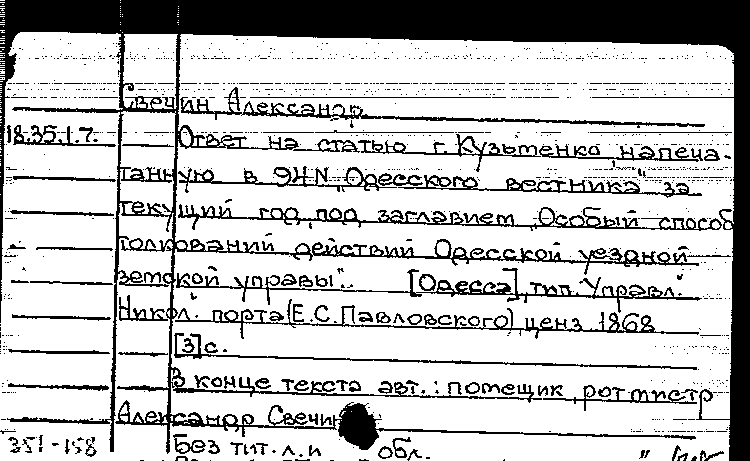 Свечин, Александр.
18.35.1.7. Ответ на статью г. Кузьменко, напеча-
танную в 94 N "Одесского вестника" за
текущий год, под заглавием "Особый способ
толкований действий Одесской уездной
земской управы". [Одесса], тип. "Управл.
Никол." порта (Е.С. Павловского), ценз. 1868.
[3] с.
В конце текста авт.: помещик, ротмистр
Александр Свечин
351-158 Без тит. л. и обл.